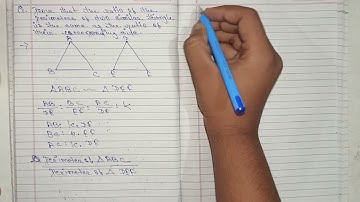 Q. Prove that the ratio of the
perimeters of two similar triangle
is the same as the ratio of
their corresponding side
→
A D
B C E F
△ABC ~ △DEF
AB/DE = BC/EF = AC/DF = k
AB = k. DE
BC = k. EF
AC = k. DF
Perimeter of △ABC
Perimeter of △ DEF